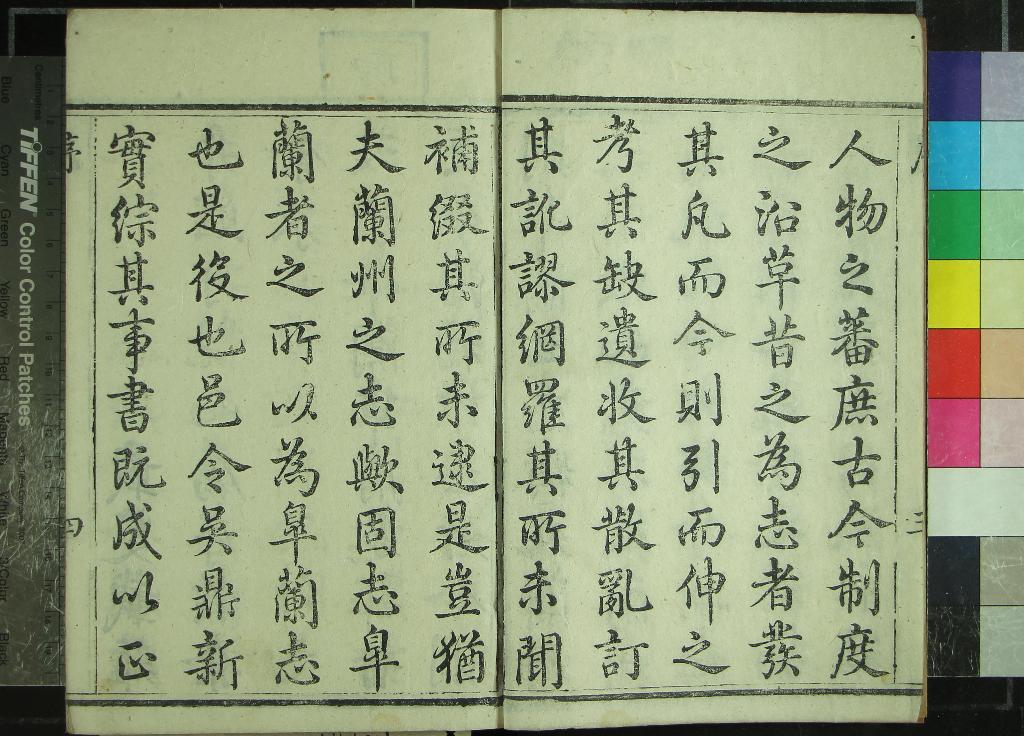 人物之蕃庶古今制度
之沿草昔之為志者發
其凡而今則引而伸之
考其缺遺收其散亂訂
其訛謬網羅其所未聞
補綴其所未逮是豈猶
夫蘭州之志歟固志皐
蘭者之所以為皐蘭志
也是役也邑令吳鼎新
實綜其事書既成以正
序
三
四
Centimetres
TIFFEN Color Control Patches
Blue
Cyan
Green
Yellow
Red
Magenta
White
3/Color
Black